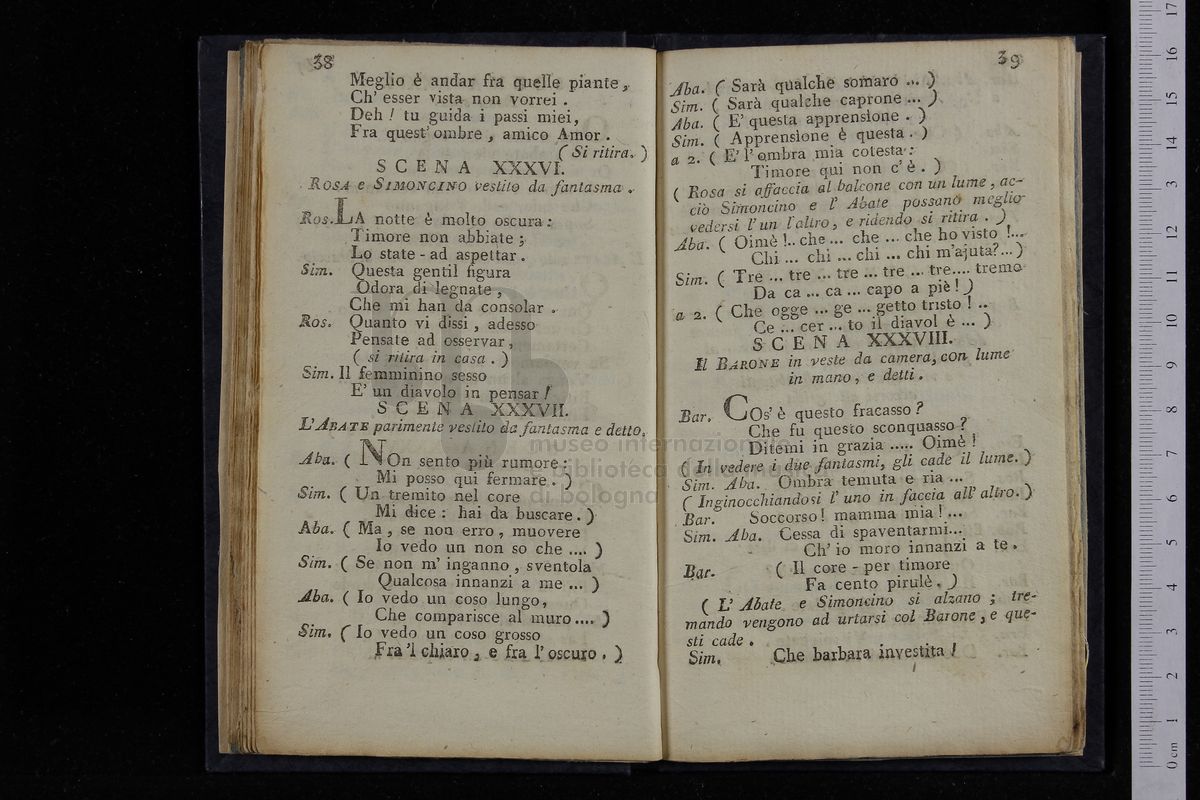 38
Meglio è andar fra quelle piante,
Ch' esser vista non vorrei .
Deh ! tu guida i passi miei,
Fra quest' ombre , amico Amor .
( Si ritira. )
SCENA XXXVI.
ROSA e SIMONCINO vestito da fantasma .
Ros. LA notte è molto oscura :
Timore non abbiate ;
Lo state - ad aspettar .
Sim. Questa gentil figura
Odora di legnate ,
Che mi han da consolar .
Ros. Quanto vi dissi , adesso
Pensate ad osservar ,
( si ritira in casa . )
Sim. Il femminino sesso
E' un diavolo in pensar !
SCENA XXXVII.
L'ABATE parimente vestito da fantasma e detto.
Aba. ( NOn sento più rumore :
Mi posso qui fermare . )
Sim. ( Un tremito nel core
Mi dice : hai da buscare . )
Aba. ( Ma , se non erro , muovere
Io vedo un non so che .... )
Sim. ( Se non m' inganno , sventola
Qualcosa innanzi a me ... )
Aba. ( Io vedo un coso lungo,
Che comparisce al muro .... )
Sim. ( Io vedo un coso grosso
Fra 'l chiaro , e fra l' oscuro . )
39
Aba. ( Sarà qualche somaro ... )
Sim. ( Sarà qualche caprone ... )
Aba. ( E' questa apprensione . )
Sim. ( Apprensione è questa . )
a 2. ( E' l' ombra mia cotesta :
Timore qui non c' è . )
( Rosa si affaccia al balcone con un lume , ac-
ciò Simoncino e l' Abate possano meglio
vedersi l' un l'altro , e ridendo si ritira . )
Aba. ( Oimè !.. che ... che ... che ho visto !...
Chi ... chi ... chi ... chi m'ajuta?...)
Sim. ( Tre ... tre ... tre ... tre ... tre.... tremo
Da ca ... ca ... capo a piè ! )
a 2. ( Che ogge ... ge ... getto tristo ! ..
Ce ... cer ... to il diavol è ... )
SCENA XXXVIII.
Il BARONE in veste da camera, con lume
in mano , e detti .
Bar. COs' è questo fracasso ?
Che fu questo sconquasso ?
Ditemi in grazia ..... Oimè !
( In vedere i due fantasmi, gli cade il lume. )
Sim. Aba. Ombra temuta e ria ...
( Inginocchiandosi l' uno in faccia all' altro. )
Bar. Soccorso ! mamma mia ! ...
Sim. Aba. Cessa di spaventarmi...
Ch' io moro innanzi a te .
Bar. ( Il core - per timore
Fa cento pirulè . )
( L' Abate e Simoncino si alzano ; tre-
mando vengono ad urtarsi col Barone , e que-
sti cade .
Sim. Che barbara investita !
museo internazionale
e biblioteca della musica
di bologna
0 cm 1 2 3 4 5 6 7 8 9 10 11 12 13 14 15 16 17